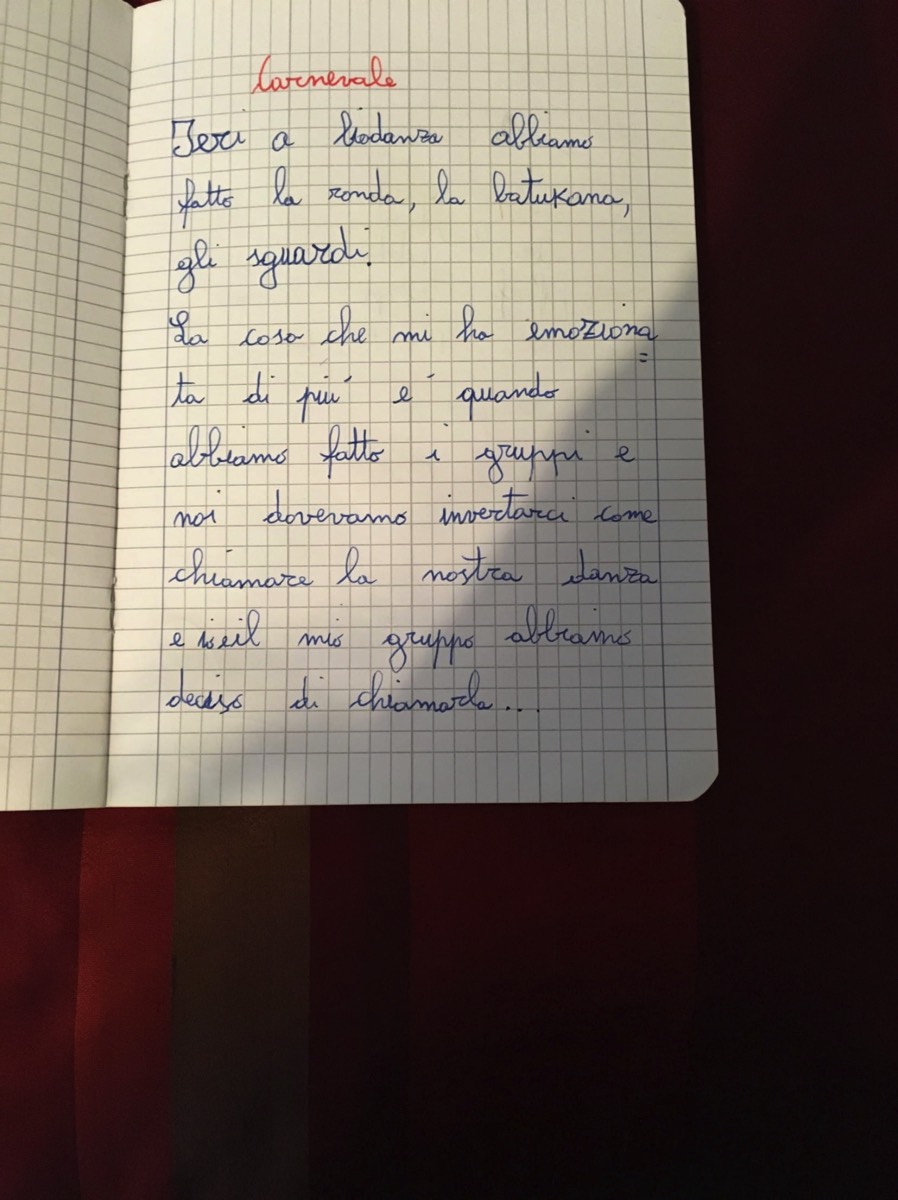 Carnevale
Ieri a biodanza abbiamo
fatto la ronda, la batukana,
gli sguardi.
La cosa che mi ha emoziona
=
ta di piú é quando
abbiamo fatto i gruppi e
noi dovevamo inventarci come
chiamare la nostra danza
e il mio gruppo abbiamo
deciso di chiamarla...